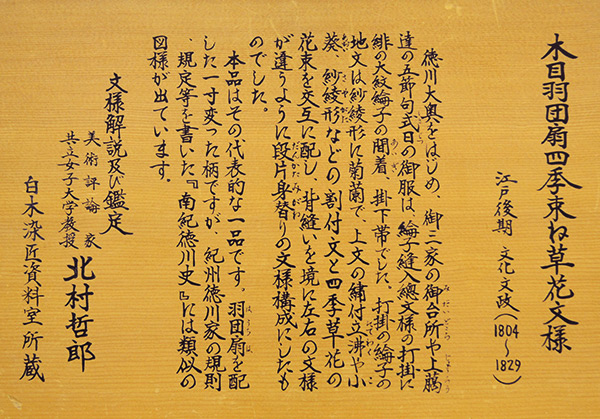 木目羽団扇四季束ね草花文様
江戸後期 文化文政(1804～1829)
徳川大奥をはじめ、御三家の御台所や上﨟
達の五節句式日の御服は、綸子縫入總文様の打掛に
緋の大紋綸子の間着、掛下帯でした。打掛の綸子の
地文は紗綾形に菊蘭で、上文の繡付立沸や小
葵、紗綾形などの割付文と四季草花の
花束を交互に配し、背縫いを境に左右の文様
が違うように段片身替りの文様構成にしたも
のでした。
本品はその代表的な一品です。羽団扇を配
した一寸変った柄ですが、紀州徳川家の規則
、規定等を書いた『南紀徳川史』には類似の
図様が出ています。
文様解説及び鑑定
美術評論家
共立女子大学教授
北村哲郎
白木染匠資料室所蔵